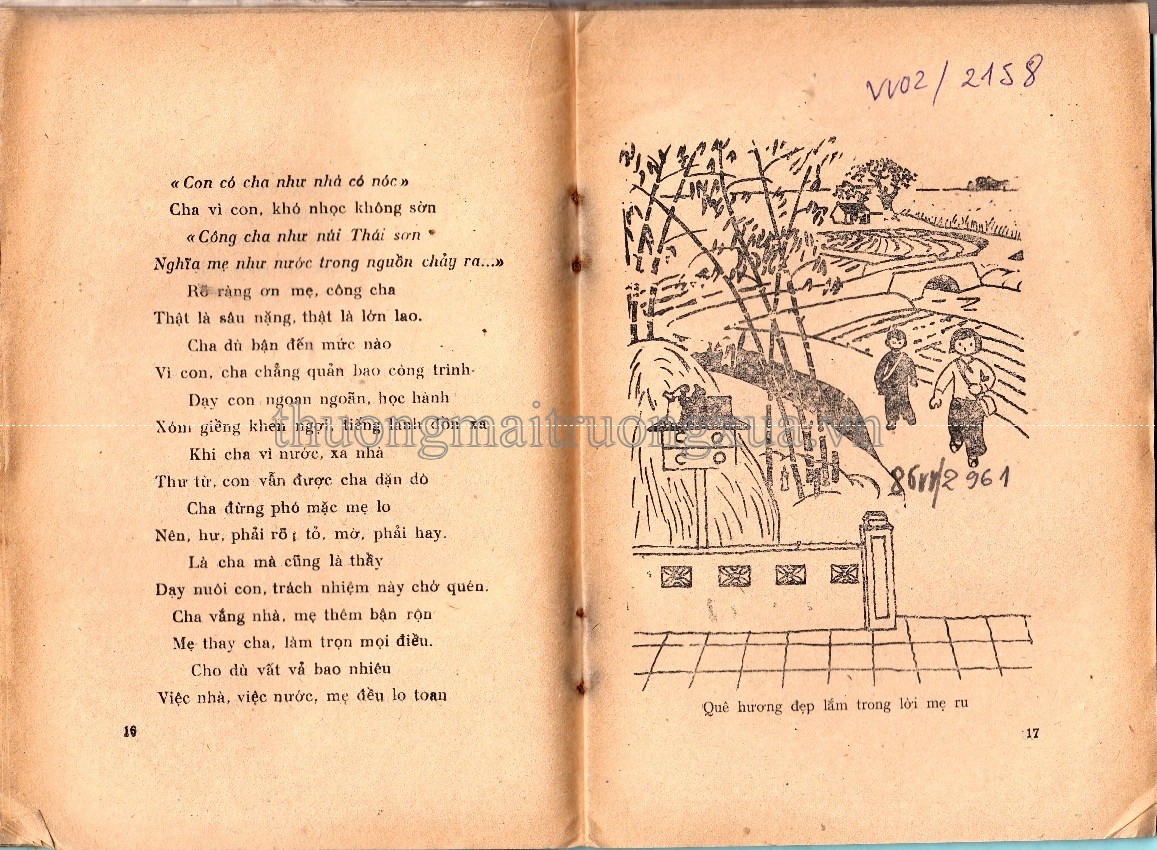 « Con có cha như nhà có nóc »
Cha vì con, khó nhọc không sờn
« Công cha như núi Thái sơn
Nghĩa mẹ như nước trong nguồn chảy ra...»
Rõ ràng ơn mẹ, công cha
Thật là sâu nặng, thật là lớn lao.
Cha dù bận đến mức nào
Vì con, cha chẳng quản bao công trình.
Dạy con ngoan ngoãn, học hành
Xóm giềng khen ngợi, tiếng lành đồn xa
Khi cha vì nước, xa nhà
Thư từ, con vẫn được cha dặn dò
Cha đừng phó mặc mẹ lo
Nên, hư, phải rõ ; tỏ, mờ, phải hay.
Là cha mà cũng là thầy
Dạy nuôi con, trách nhiệm này chớ quên.
Cha vắng nhà, mẹ thêm bận rộn
Mẹ thay cha, làm trọn mọi điều.
Cho dù vất vả bao nhiêu
Việc nhà, việc nước, mẹ đều lo toan
16
VV02/ 2158
2961
Quê hương đẹp lắm trong lời mẹ ru
17
thuongmaitruongxua.vn